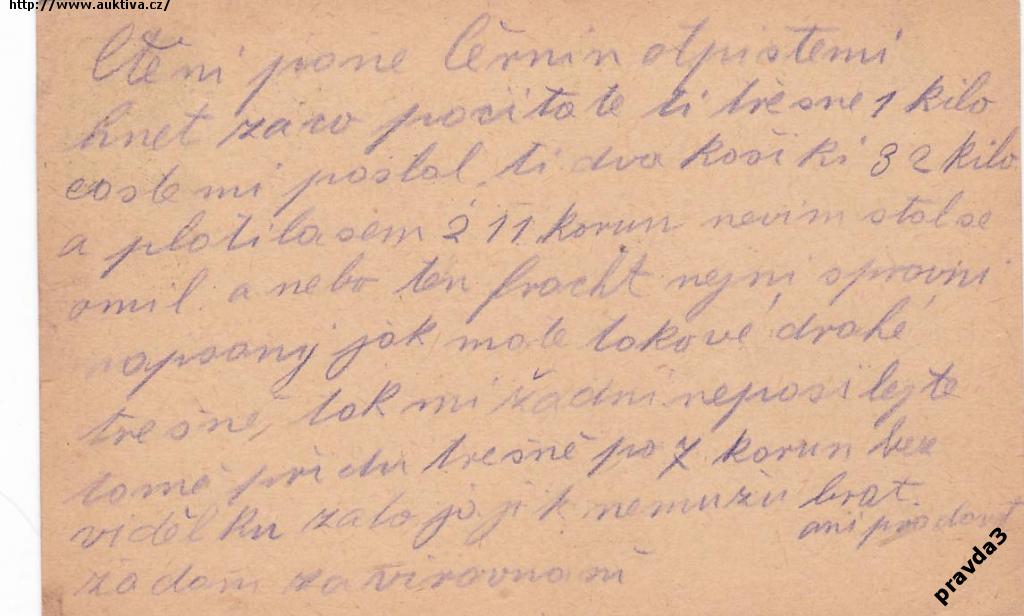 http://www.auktiva.cz/
Ctění pane Černin otpistemi
hnet zaco počítate ti třešne 1 kilo
costemi poslal, ti dva košiki 32 kilo
a platilasem 211 korun nevim stalse
omil a nebo ten fracht nejni spravni
napsany jak mate takové drahé
třešně, tak mi žadni neposilejte
tomě pridu třešně po 7 korun bez
vidělku zato ja jik nemužu brat.
ani prodavat
žadam za virovnani
pravda3